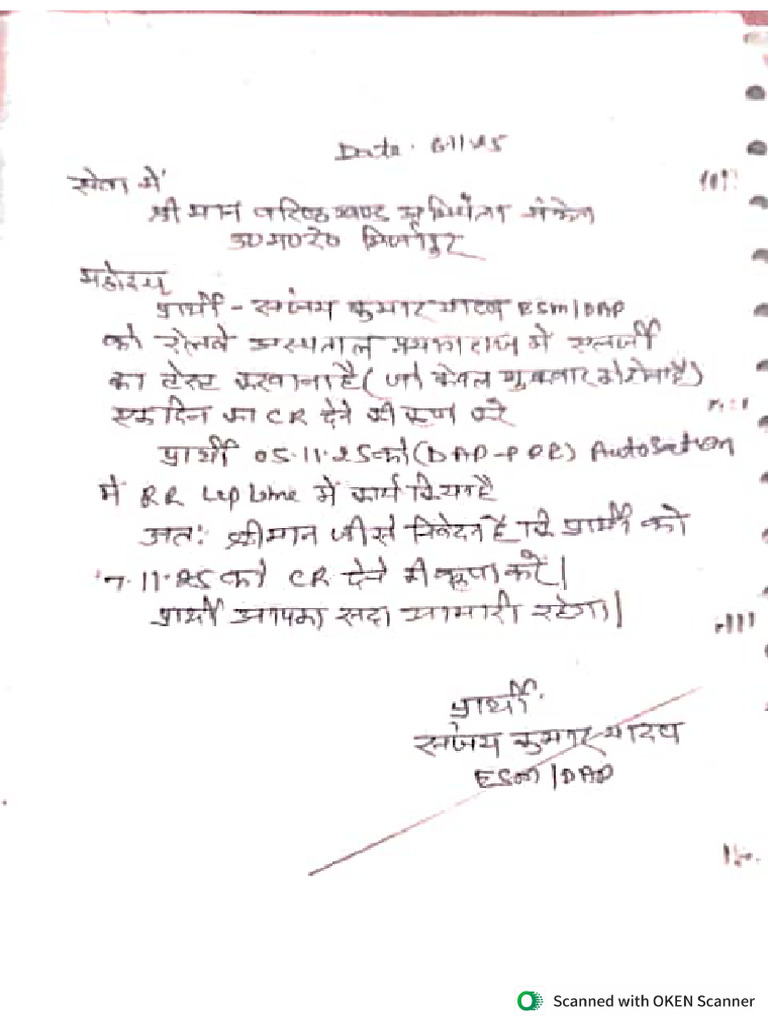 Date. 6.11.25
सेवा में
श्रीमान वरिष्ठ खण्ड अभियंता संकेत
उ०म०रे० मिर्जापुर
महोदय
प्रार्थी - संजय कुमार यादव ESM/DAP
को रेलवे अस्पताल प्रयागराज में एलर्जी
का टेस्ट करवाना है (जो केवल शुक्रवार को होता है)
एक दिन का CR देने की कृपा करे
प्रार्थी 05.11.25 को (DAP-PCR) AutoSection
में RR Lep Lame में कार्य किया है
अतः श्रीमान जी से निवेदन है कि प्रार्थी को
7.11.25 को CR देने की कृपा करें।
प्रार्थी आपका सदा आभारी रहेगा।
प्रार्थी
संजय कुमार यादव
ESM/DAP
Scanned with OKEN Scanner